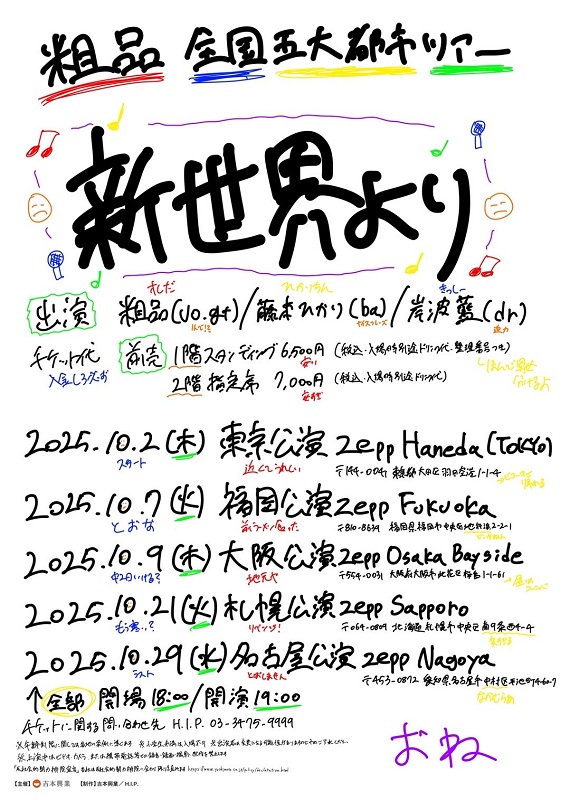 粗品 全国五大都市ツアー
新世界より
そしだ ひかりめん きっしー
出演 粗品(vo.gt)/藤本ひかり(ba)/岸波藍(dr)
迫力
チケット代 前売 1階スタンディング 6,500円 (税込・入場時別途ドリンク代・整理番号つき)
安い
2階指定席 7,000円 (税込・入場時別途ドリンク代)
2025.10.2(木) 東京公演 Zepp Haneda(TOKYO)
スタート 近くてうれしい 〒144-0041 東京都大田区羽田空港1-1-4
2025.10.7(火) 福岡公演 Zepp Fukuoka
〒810-8639 福岡県福岡市中央区地行浜2-2-1
2025.10.9(木) 大阪公演 Zepp Osaka Bayside
中2日いける? 地元や 〒554-0031 大阪府大阪市此花区桜島1-1-61
2025.10.21(火) 札幌公演 Zepp Sapporo
もう寒い? リベンジ! 〒064-0809 北海道札幌市中央区南9条西4-4
2025.10.29(水) 名古屋公演 Zepp Nagoya
ラスト 〒453-0872 愛知県名古屋市中村区平池町4-60-7
↑全部 開場18:00/開演19:00
チケットに関する問い合わせ先 H.I.P. 03-3475-9999
おね
【主催】吉本興業 【制作】吉本興業/H.I.P.